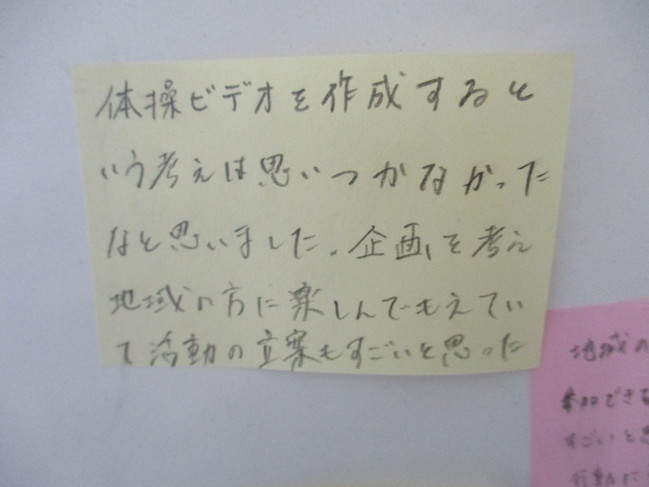 体操ビデオを作成すると
いう考えは思いつかなかった
なと思いました。企画を考え
地域の方に楽しんでもえてい
て活動の立案もすごいと思った
地域の
参加できる
すごいと思